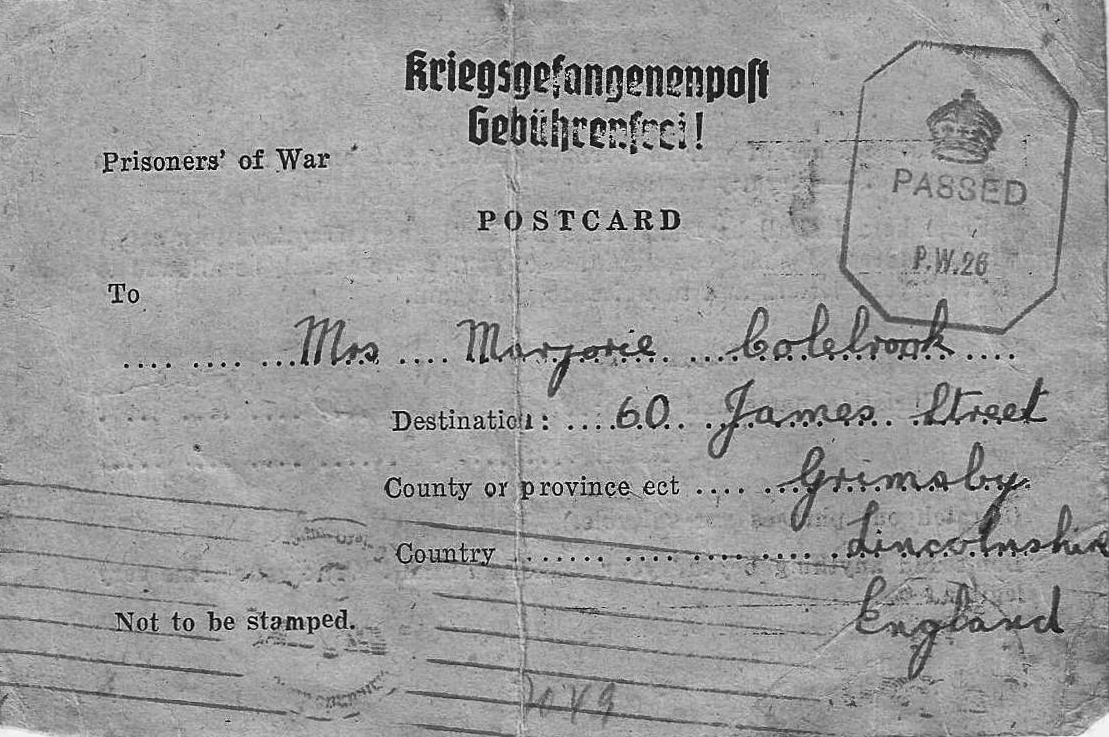 Kriegsgefangenenpost
Gebührenfrei!
Prisoners' of War
POSTCARD
PASSED
P.W.26
To
Mrs Marjorie Colebrook
Destination: 60 James Street
County or province ect Grimsby
Country Lincolnshire
England
Not to be stamped.